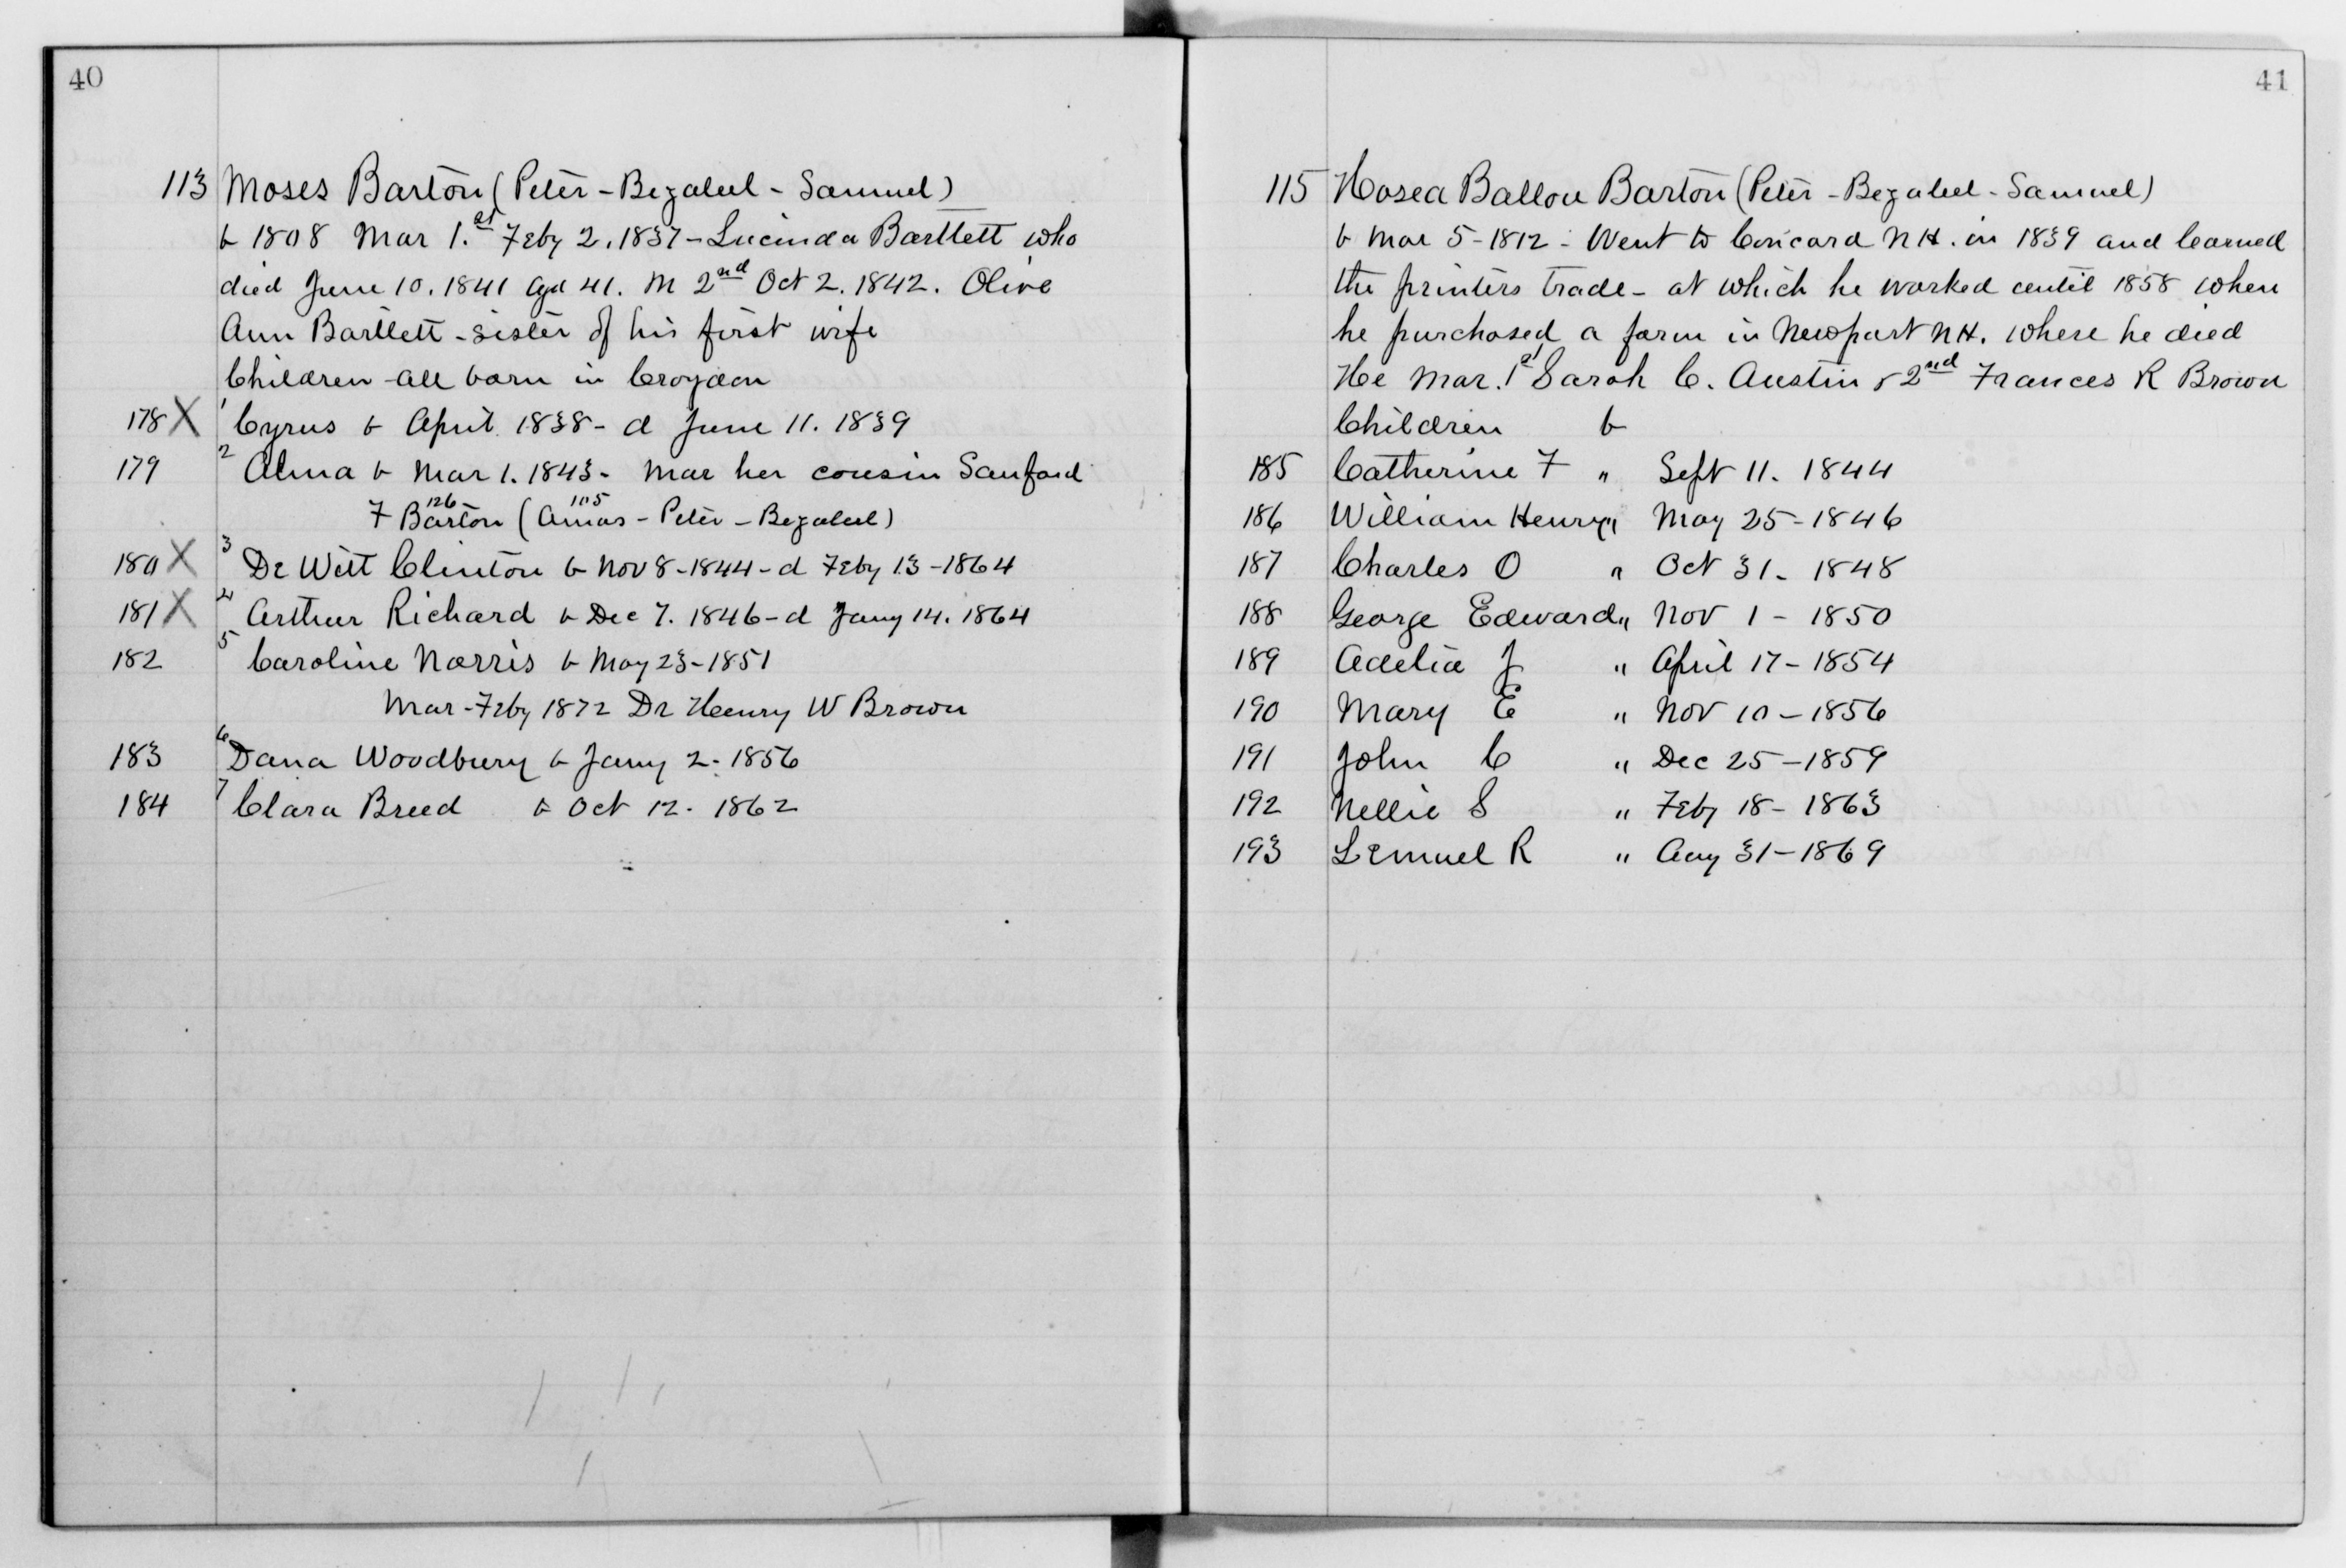 40
113 Moses Barton (Peter - Bezaleel - Samuel)
b 1808 Mar 1.st Feby 2. 1837 - Lucinda Bartlett who
died June 10. 1841 age 41. M 2nd Oct 2. 1842. Olive
Ann Bartlett - sister of his first wife
Children - all born in Croydon
178 X 1 Cyrus b April 1838 - d June 11. 1839
179 2 Alma b Mar 1. 1843 - Mar her cousin Sanford
126 105
F Barton (Amos - Peter - Bezaleel)
180 X 3 De Witt Clinton b Nov 8 - 1844 - d Feby 13 - 1864
181 X 4 Arthur Richard b Dec 7. 1846 - d Jany 14. 1864
182 5 Caroline Norris b May 23 - 1851
Mar - Feby 1872 Dr Henry W Brown
183 6 Dana Woodbury b Jany 2 - 1856
184 7 Clara Breed b Oct 12 - 1862
41
115 Hosea Ballou Barton (Peter - Bezaleel - Samuel)
b Mar 5 - 1812 - Went to Concord N H. in 1839 and learned
the printers trade - at which he worked until 1858 when
he purchased a farm in Newport N H. where he died
He Mar. 1st Sarah C. Austin & 2nd Frances R Brown
Children b
185 Catherine F " Sept 11. 1844
186 William Henry " May 25 - 1846
187 Charles O " Oct 31 - 1848
188 George Edward " Nov 1 - 1850
189 Adelia J " April 17 - 1854
190 Mary E " Nov 10 - 1856
191 John C " Dec 25 - 1859
192 Nellie S " Feby 18 - 1863
193 Lemuel R " Aug 31 - 1869